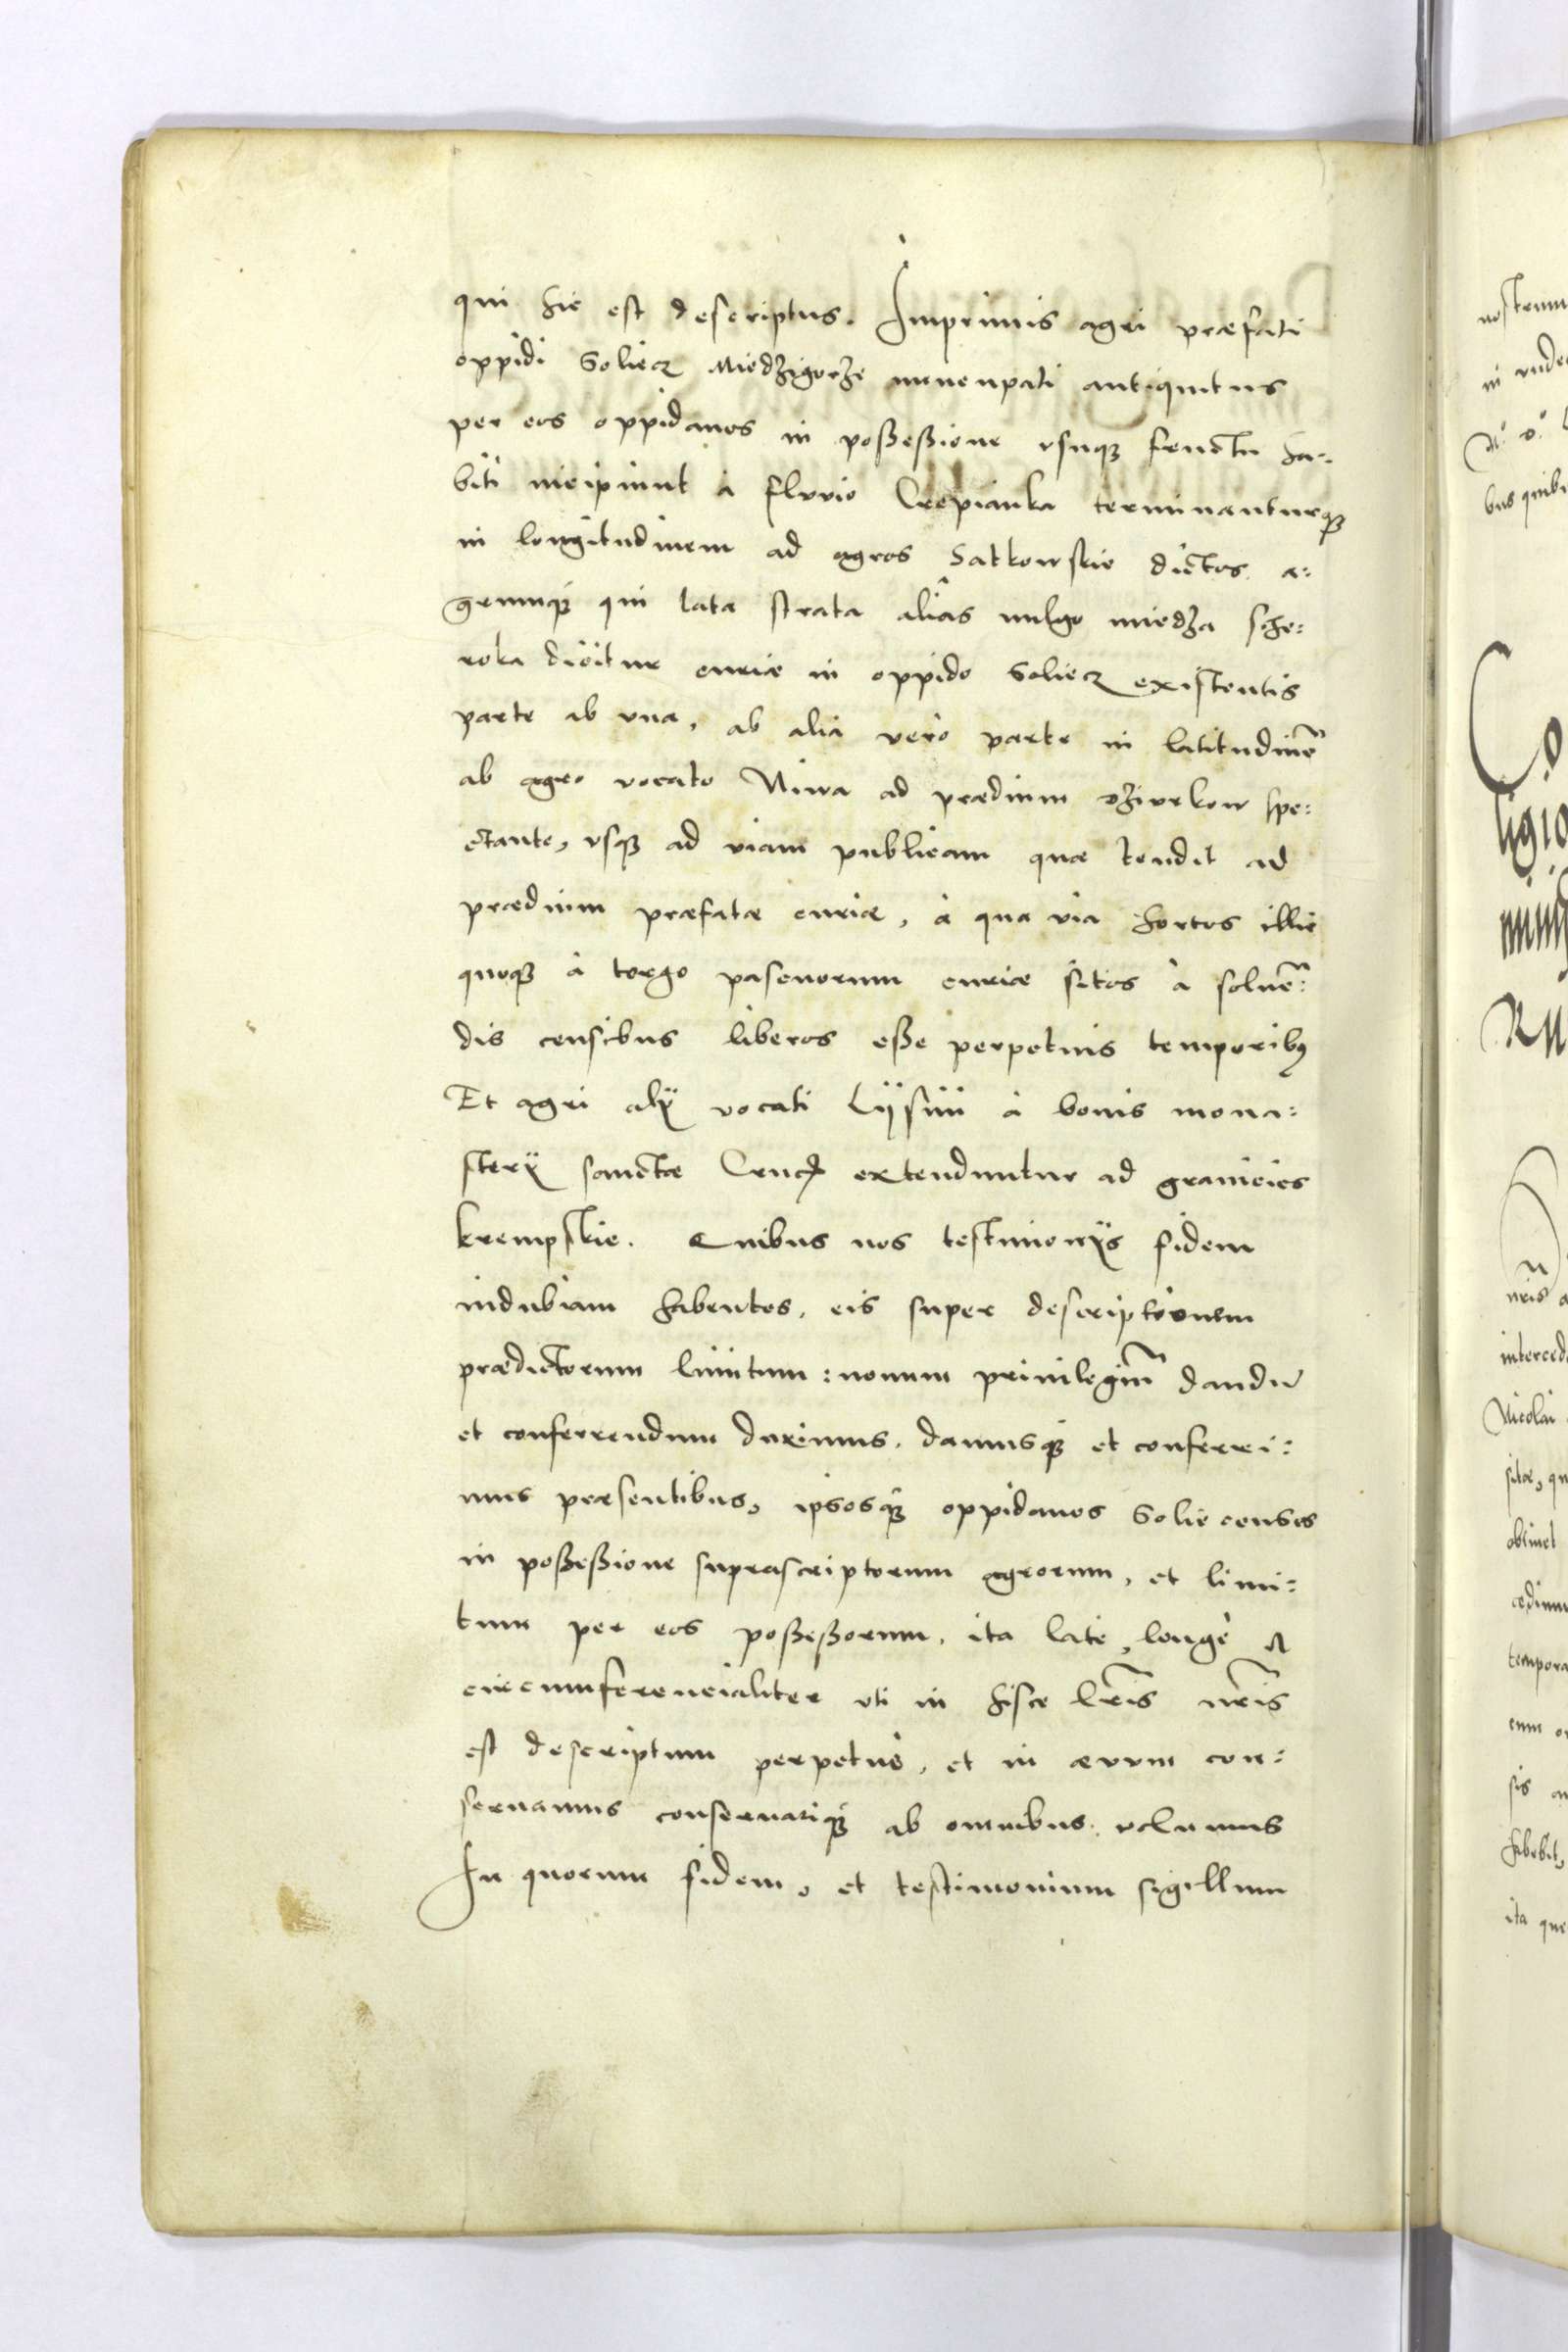 qui hic est descriptus. Imprimis agri præfati
oppidi Soliecz Miedzigorze nuncupati antiquitus
per eos oppidanos in poßeßione vsuq₃ fructu ha:
biti incipiunt à fluuio Crepianka terminanturq₃
in longitudinem ad agros Satkowskie dictos, a:
grumq₃ qui lata strata aliâs uulgo miedza sche:
roka dicitur curiæ in oppido Soliecz existentis
parte ab vna, ab alia verò parte in latitudinē
ab agro vocato Niwa ad prædium dziurkow spe:
ctante, vsq₃ ad viam publicam quæ tendit ad
prædium præfatæ curiæ, à qua via hortos illic
quoq₃ à tergo pascuorum curiæ sitos à soluē:
dis censibus liberos eße perpetuis temporibꝰ
Et agri alij vocati Lysiny à bonis mona:
sterij sanctæ Crucis extenduntur ad granicies
krempskie. Quibus nos testimonijs fidem
indubiam habentes, eis super descriptionem
prædictorum limitum: nouum priuilegiū dandū
et conferrendum duximus, damusq₃ et conferri:
mus præsentibus, ipsosq₃ oppidanos Soliecenses
in poßeßione suprascriptorum agrorum, et limi:
tum per eos poßeßorum, ita latè, longè et
circumferencialiter vti in hisce lr̃is nr̃is
est descriptum perpetuò, et in ævum con:
seruamus conseruariq₃ ab omnibus volumus
In quorum fidem, et testimonium sigillum
nostrum
in
Nicolai
obtinet
ita que